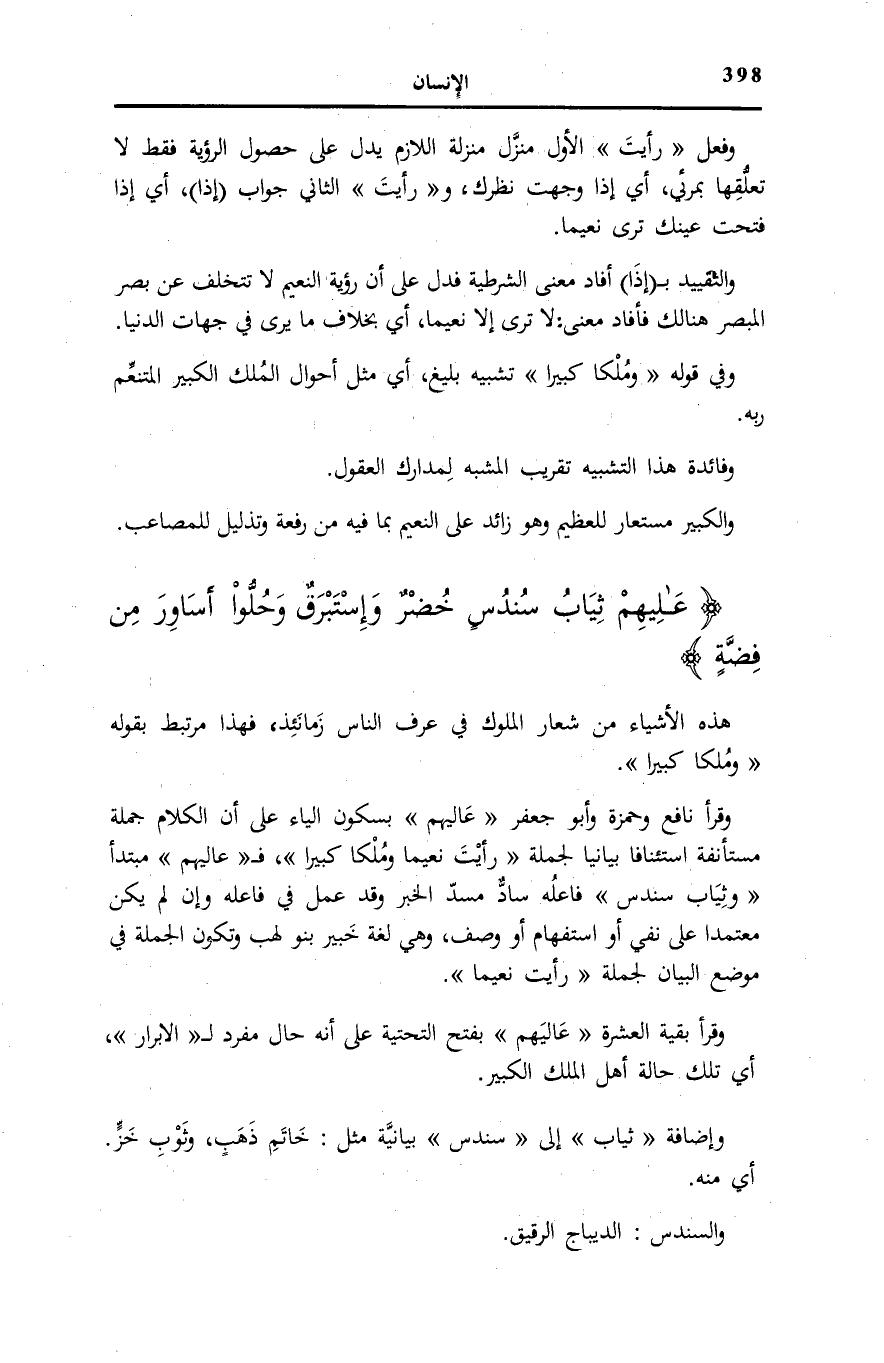 398
الإنسان
وفعل « رأيتَ » الأول منزَّل منزلة اللازم يدل على حصول الرؤية فقط لا
تعلُّقِها بمرئي، أي إذا وجهت نظرك، و« رأيتَ » الثاني جواب (إذا)، أي إذا
فتحت عينك ترى نعيما.
والتقييد بـ(إذَا) أفاد معنى الشرطية فدل على أن رؤية النعيم لا تتخلف عن بصر
المبصر هنالك فأفاد معنى:لا ترى إلا نعيما، أي بخلاف ما يرى في جهات الدنيا.
وفي قوله « ومُلْكا كبيرا » تشبيه بليغ، أي مثل أحوال المُلك الكبير المتنعِّم
ربه.
وفائدة هذا التشبيه تقريب المشبه لِمدارك العقول.
والكبير مستعار للعظيم وهو زائد على النعيم بما فيه من رفعة وتذليل للمصاعب.
﴿ عَـٰلِيهِمْ ثِيَابُ سُندُسٍ خُضْرٌ وَإِسْتَبْرَقٌ وَحُلُّواْ أَسَاوِرَ مِن
فِضَّةٍ ﴾
هذه الأشياء من شعار الملوك في عرف الناس زَمانَئِذ، فهذا مرتبط بقوله
« ومُلكا كبيرا ».
وقرأ نافع وحمزة وأبو جعفر « عَاليهم » بسكون الياء على أن الكلام جملة
مستأنفة استئنافا بيانيا لجملة « رأيْتَ نعيما ومُلْكا كبيرا »، فـ« عاليهم » مبتدأ
« وثِيَاب سندس » فاعلُه سادٌّ مسدّ الخبر وقد عمل في فاعله وإن لم يكن
معتمدا على نفي أو استفهام أو وصف، وهي لغة خَبير بنو لهب وتكون الجملة في
موضع البيان لجملة « رأيت نعيما ».
وقرأ بقية العشرة « عَاليَهم » بفتح التحتية على أنه حال مفرد لـ« الابرار »،
أي تلك حالة أهل الملك الكبير.
وإضافة « ثياب » إلى « سندس » بيانيَّة مثل : خَاتَمِ ذَهَبٍ، وثَوْبِ خَزٍّ.
أي منه.
والسندس : الديباج الرقيق.